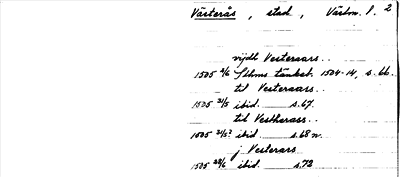 Västerås, stad, Västm. l. 2
vijdt Vesteraars..
1505 2/6 Sthms tänkeb. 1504-14, s. 66.
til Vesteraars..
1505 31/5 ibid. s. 67.
til Vestherass..
1505 31/5? ibid. s. 68 n.
j Vesterars
1505 28/6 ibid. s. 72